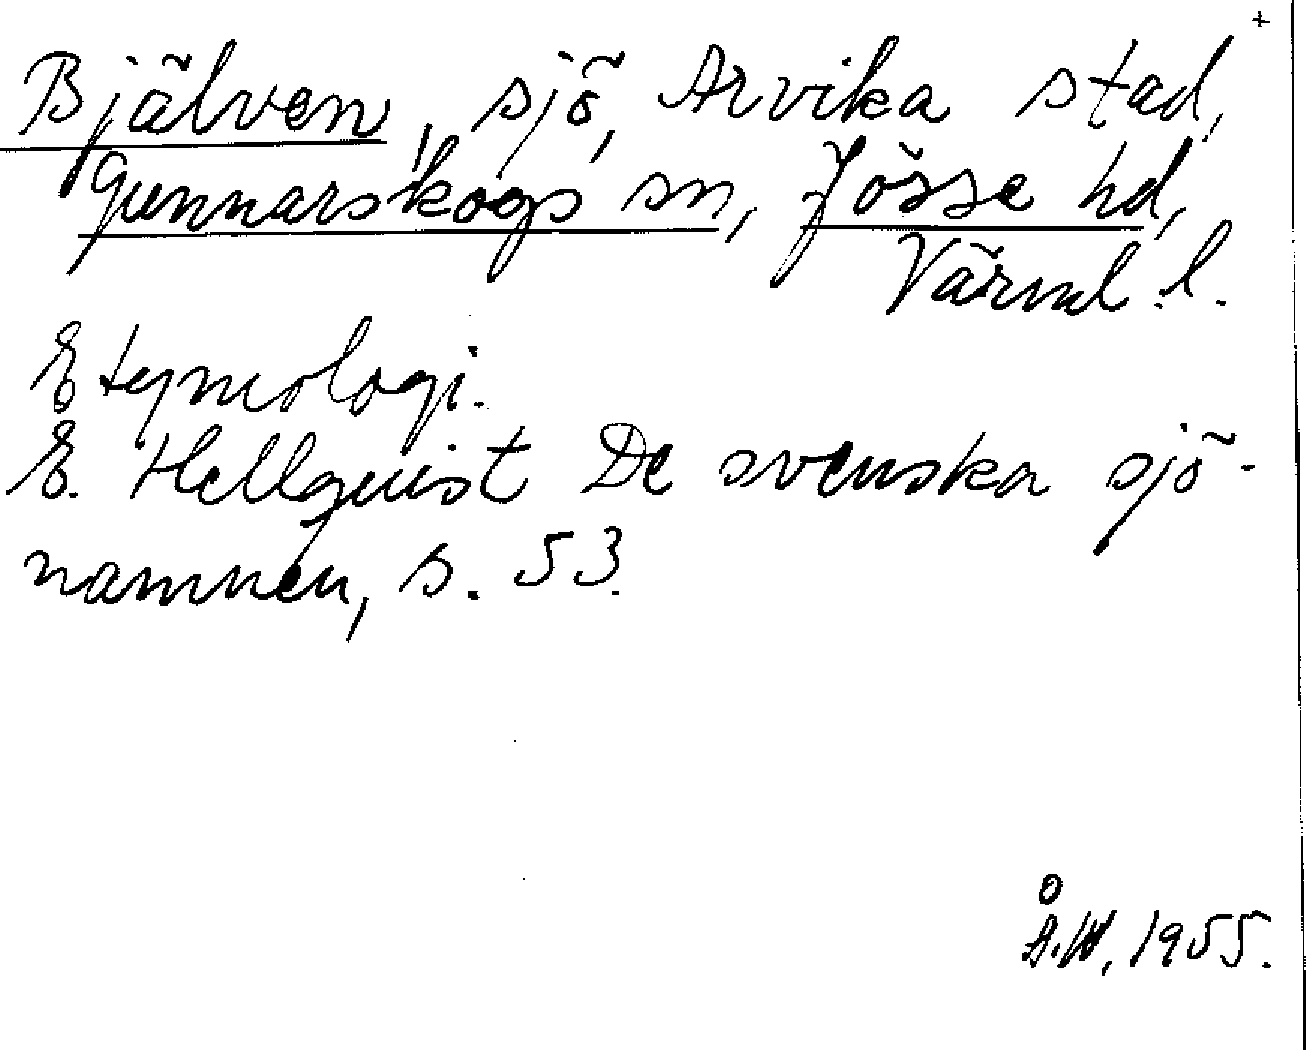 +
Bjälven, sjö, Arvika stad,
Gunnarskogs sn, Jösse hd,
Värml. l.
Etymologi.
E. Hellquist De svenska sjö-
namnen, s. 53.
Å.W, 1955.